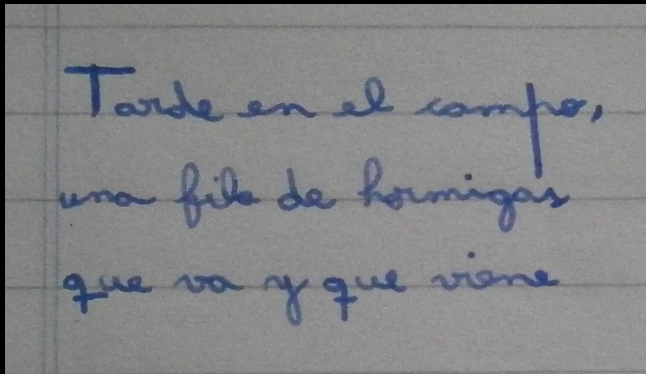 Tarde en el campo,
una fila de hormigas
que va y que viene